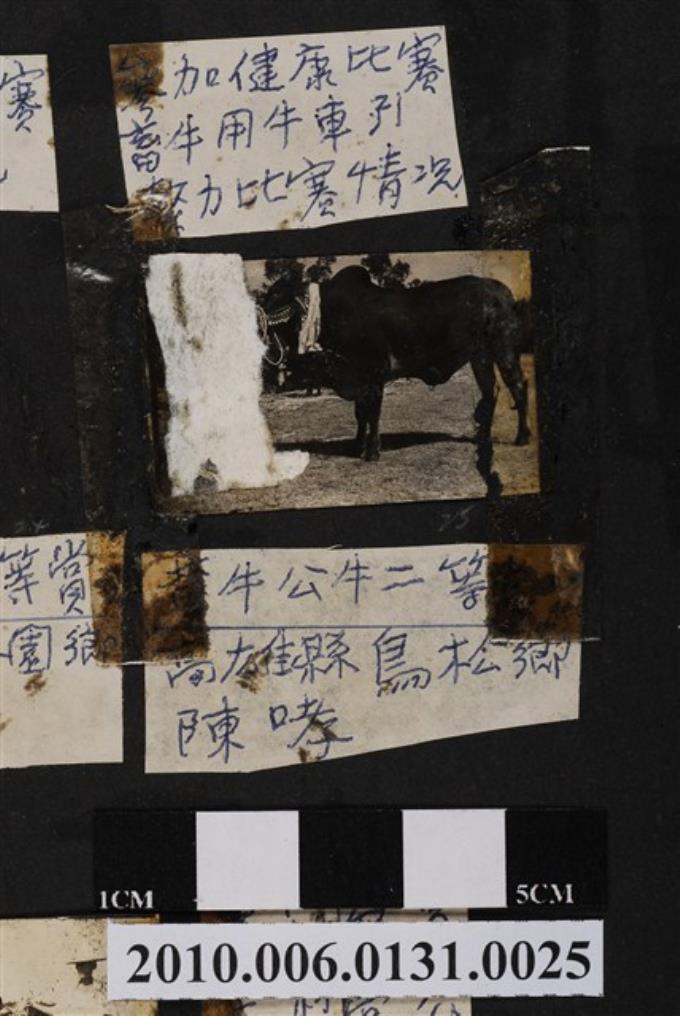 賽
參加健康比賽
黃牛用牛車引
力比賽情況
等賞
園鄉
黃牛公牛二等
高雄縣鳥松鄉
陳哮
25
1CM
5CM
2010.006.0131.0025